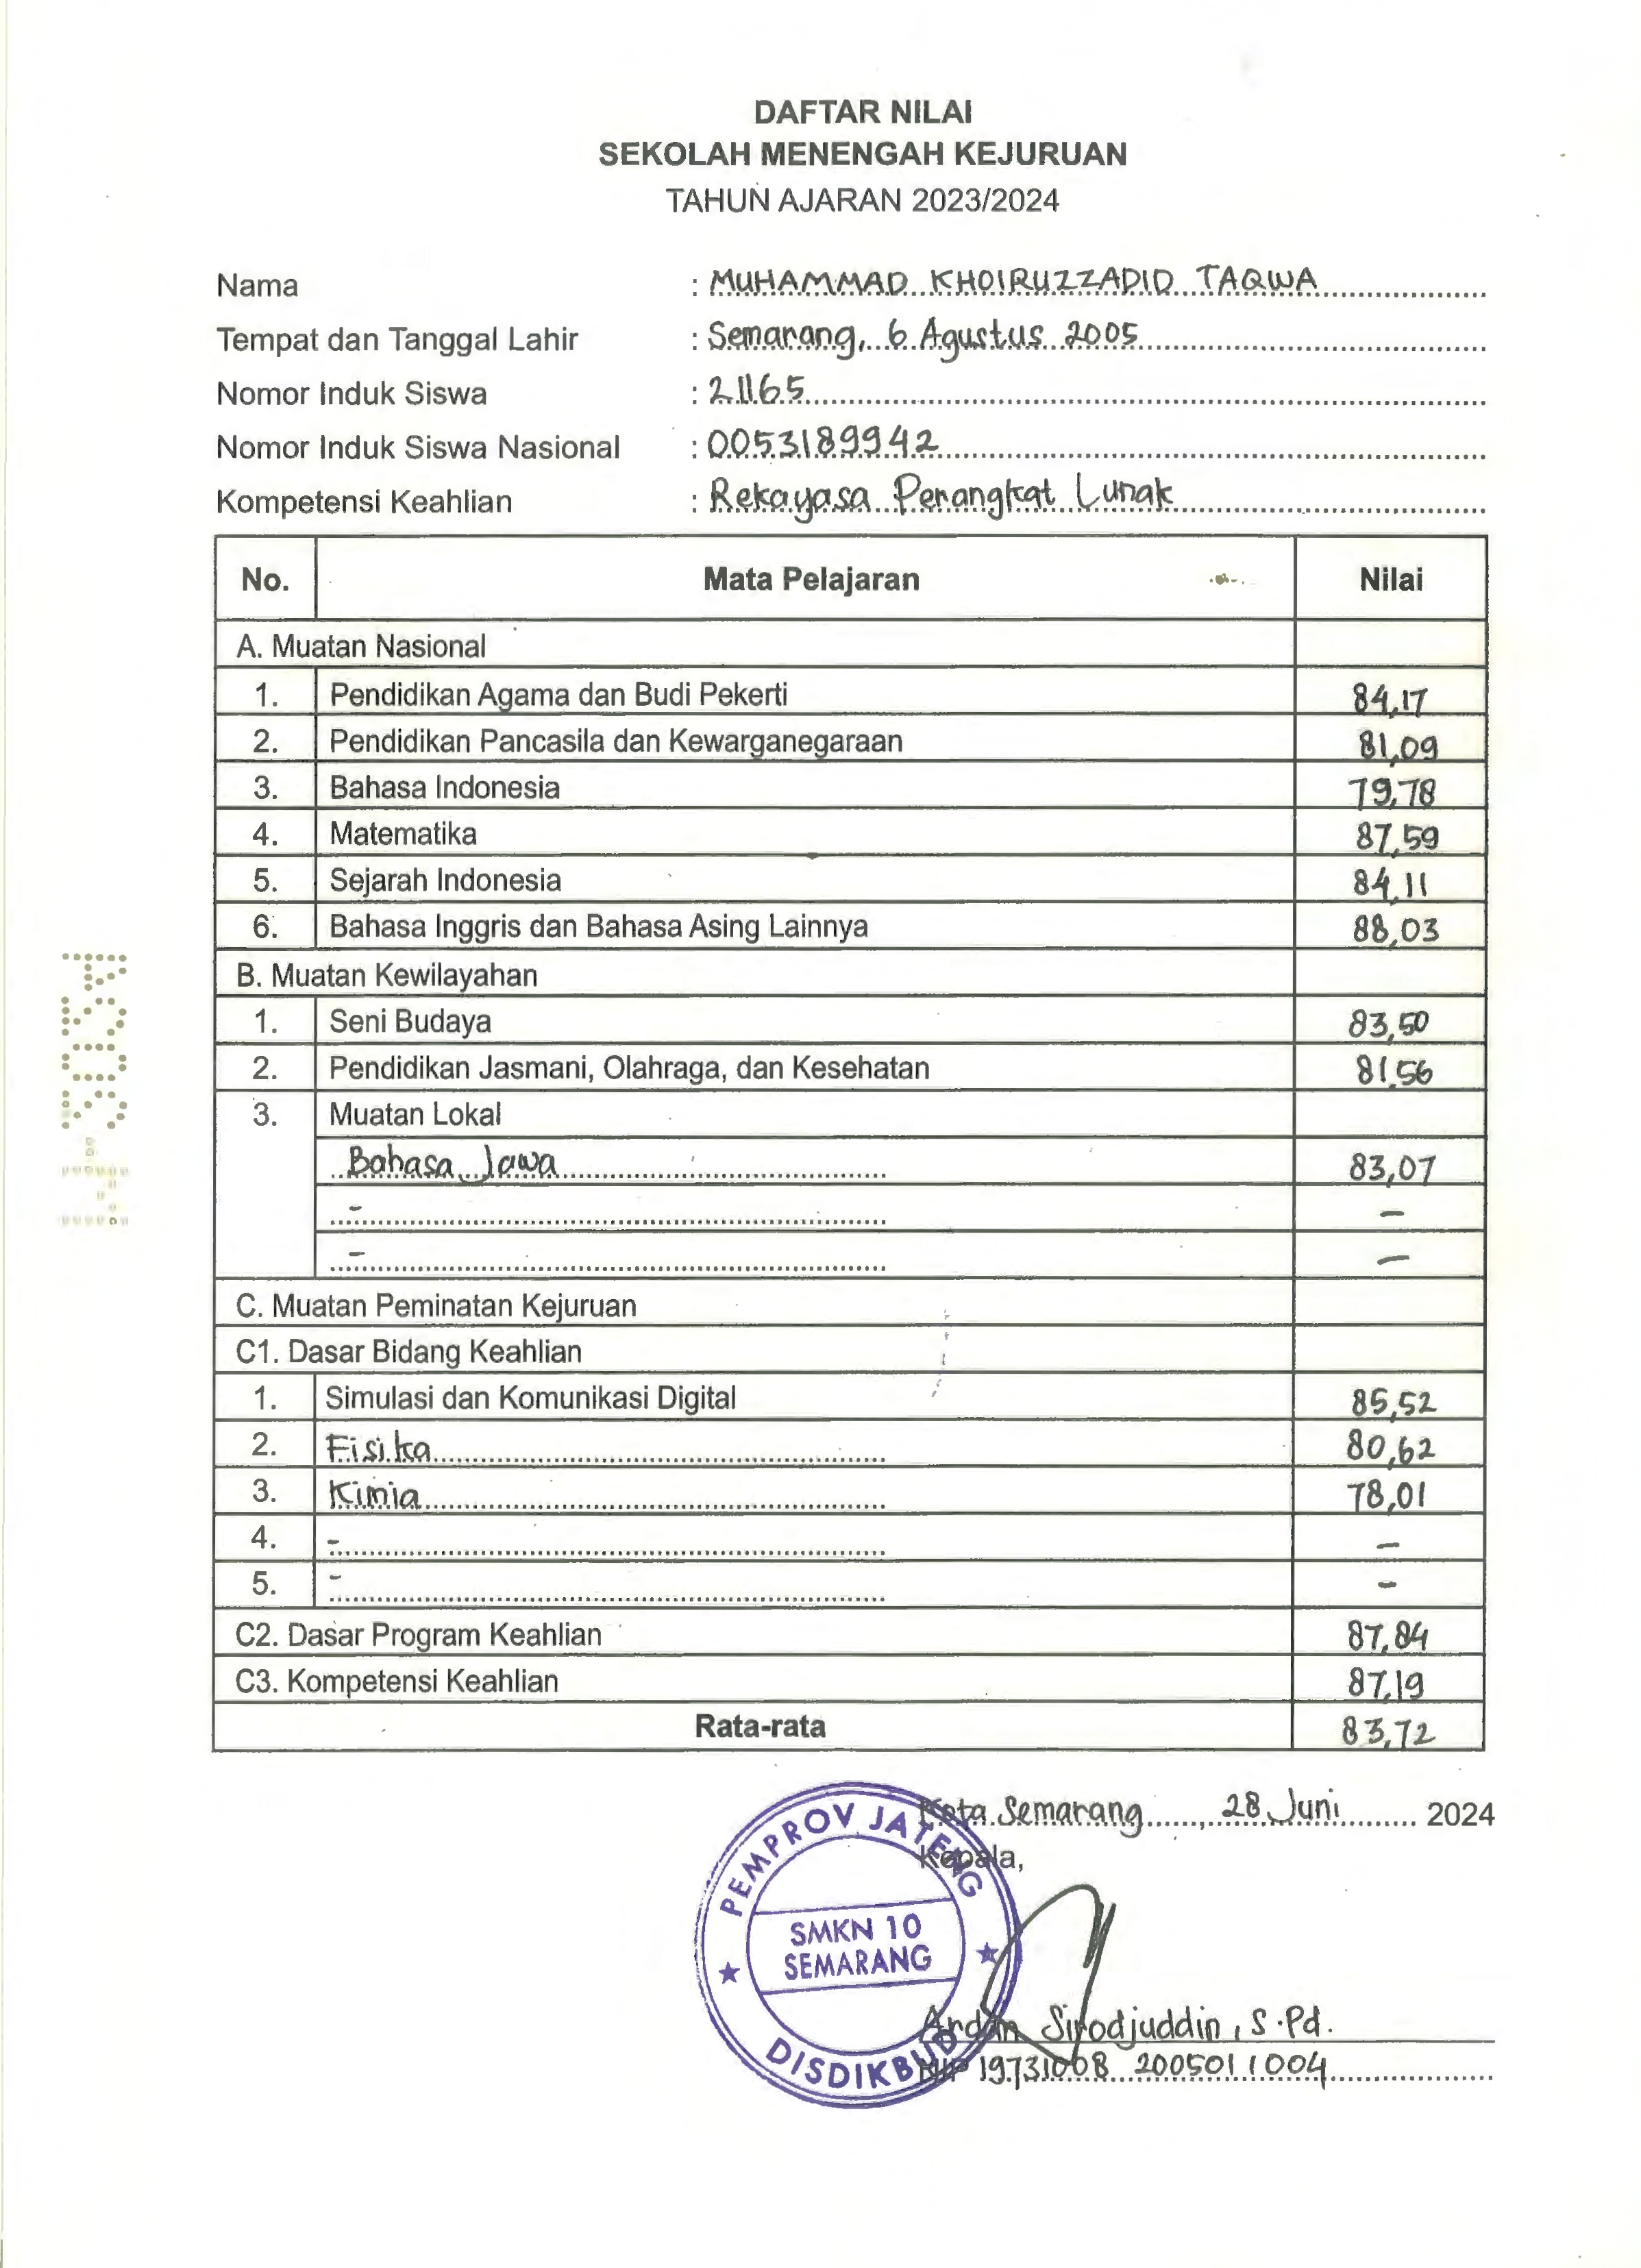 DAFTAR NILAI
SEKOLAH MENENGAH KEJURUAN
TAHUN AJARAN 2023/2024
Nama : MUHAMMAD KHOIRUZZADID TAQWA
Tempat dan Tanggal Lahir : Semarang, 6 Agustus 2005
Nomor Induk Siswa : 21165
Nomor Induk Siswa Nasional : 0053189942
Kompetensi Keahlian : Rekayasa Perangkat Lunak
No. Mata Pelajaran Nilai
A. Muatan Nasional
1. Pendidikan Agama dan Budi Pekerti 84,17
2. Pendidikan Pancasila dan Kewarganegaraan 81,09
3. Bahasa Indonesia 79,78
4. Matematika 87,59
5. Sejarah Indonesia 84,11
6. Bahasa Inggris dan Bahasa Asing Lainnya 88,03
B. Muatan Kewilayahan
1. Seni Budaya 83,50
2. Pendidikan Jasmani, Olahraga, dan Kesehatan 81,56
3. Muatan Lokal
Bahasa Jawa 83,07
- -
- -
C. Muatan Peminatan Kejuruan
C1. Dasar Bidang Keahlian
1. Simulasi dan Komunikasi Digital 85,52
2. Fisika 80,62
3. Kimia 78,01
4. - -
5. - -
C2. Dasar Program Keahlian 87,84
C3. Kompetensi Keahlian 87,19
Rata-rata 83,72
Kota Semarang, 28 Juni 2024
Kepala,
PEMPROV JATENG
SMKN 10
SEMARANG
DISDIKBUD
Ardan Sirodjuddin, S.Pd.
NIP 19731008 2005011004